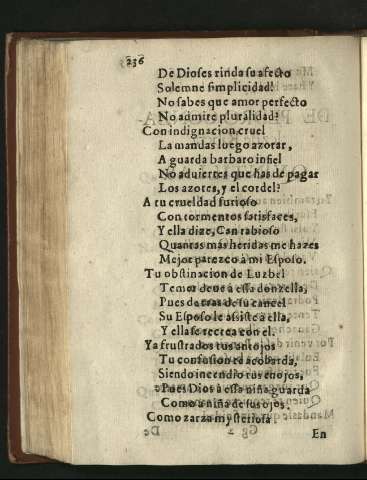 236
De Dioses rinda su afecto
Solemne simplicidad!
No sabes que amor perfecto
No admire pluralidad?
Con indignacion cruel
La mandas luego azorar,
A guarda barbaro infiel
No aduiertes que has de pagar
Los azores, y el cordel?
A tu crueldad furioso
Con tormentos satisfaces,
Y ella dize, Can rabioso
Quantas más heridas me hazes
Mejor parezco à mi Esposo.
Tu obstinacion de Luzbel
Temor deue à essa donzella,
Pues detras de su cancel
Su Esposo le assiste à ella,
Y ella se recrea con el.
Ya frustrados tus antojos
Tu confusion te acobarda,
Siendo incendio tus enojos,
Pues Dios à essa niña guarda
Como a niña de sus ojos.
Como zarza mysteriosa
En